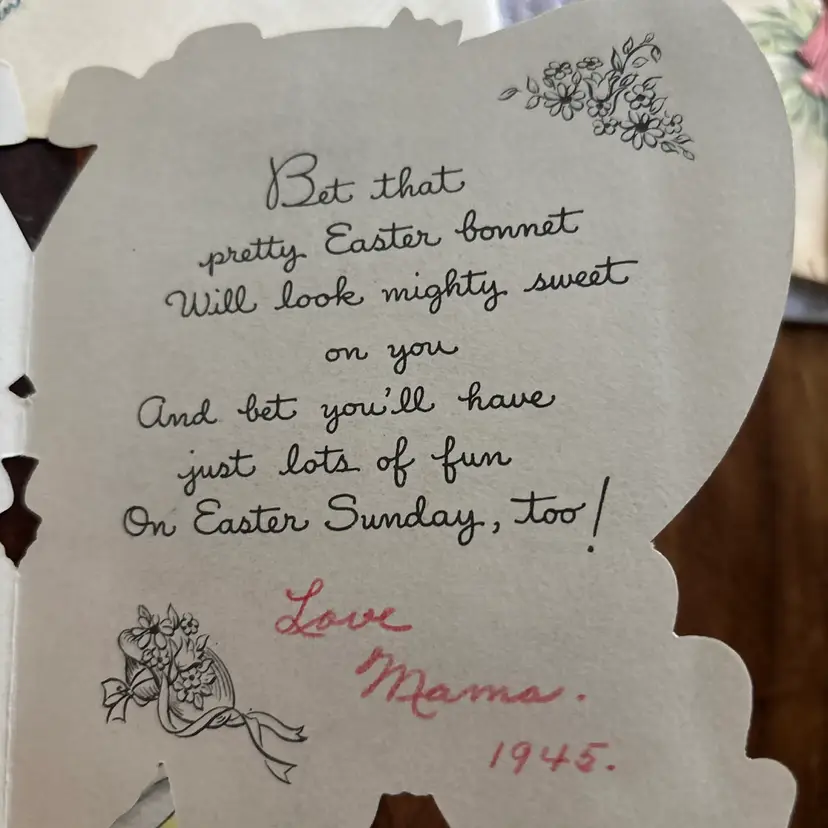 Bet that
pretty Easter bonnet
Will look mighty sweet
on you
And bet you'll have
just lots of fun
On Easter Sunday, too!
Love
Mama.
1945.